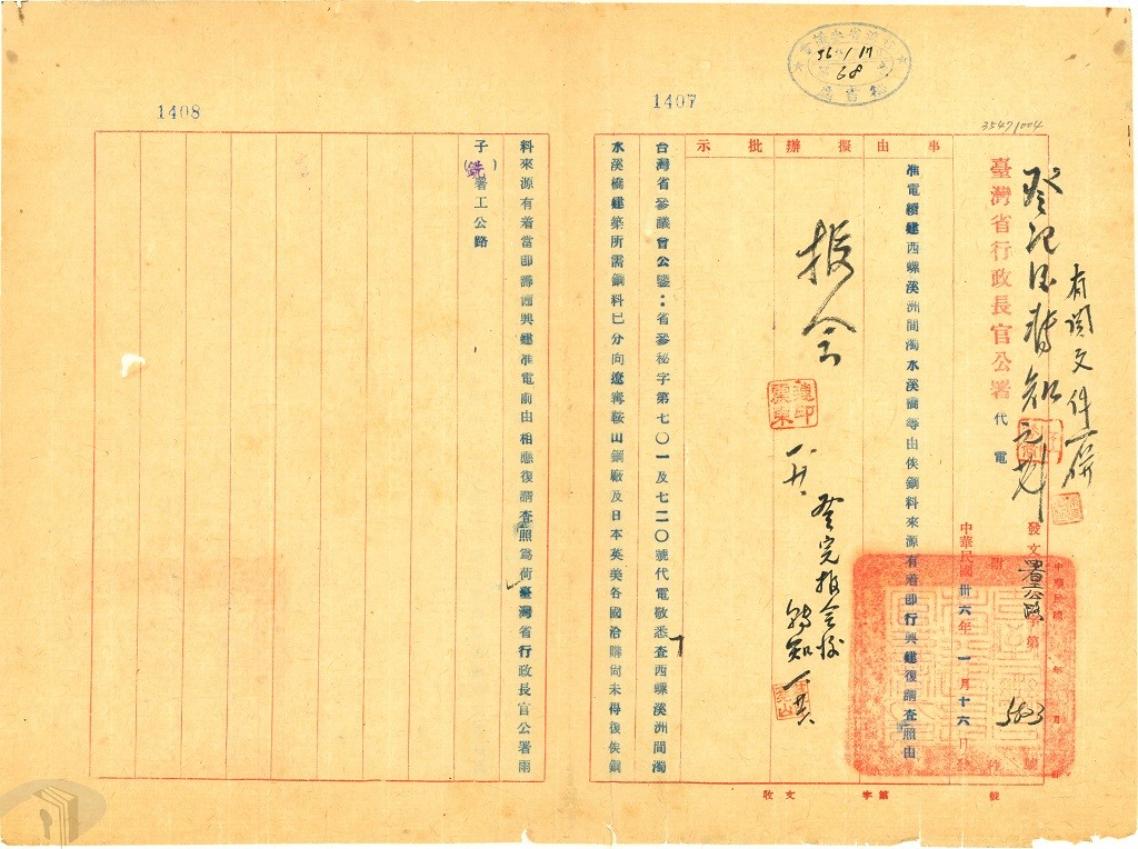 1407
1408
35471004
36 1 17
68
有關文件一併
登記後轉知
臺灣省行政長官公署 代電
發文署工公路字第5823號
中華民國卅六年一月十六日發
事由
擬辦
批示
准電續建西螺溪洲間濁水溪橋等由俟鋼料來源有着即行興建復請查照由
報會
登完報會後
轉知
台灣省參議會公鑒:省參秘字第七〇一及七二〇號代電敬悉查西螺溪洲間濁
水溪橋建築所需鋼料已分向遼寧鞍山鋼廠及日本英美各國洽購尚未得復俟鋼
料來源有着當即籌劃興建准電前由相應復請查照爲荷臺灣省行政長官公署雨
子(銑)署工公路
收文 字第 號